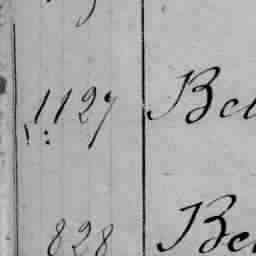 1127 Bel
828 Bel